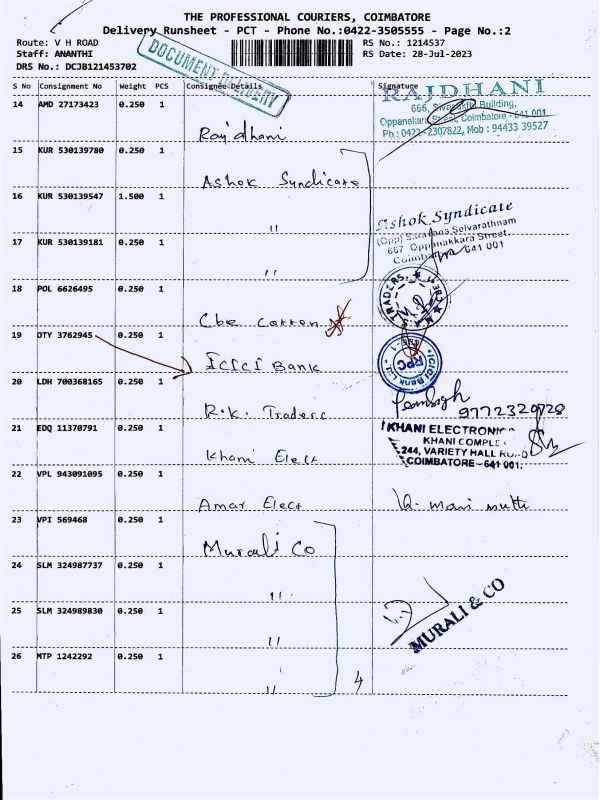 THE PROFESSIONAL COURIERS, COIMBATORE
Delivery Runsheet - PCT - Phone No.:0422-3505555 - Page No.:2
Route: V H ROAD
RS No.: 1214537
Staff: ANANTHI
RS Date: 28-Jul-2023
DRS No.: DCJB121453702
DOCUMENT DELIVERY
S No Consignment No Weight PCS Consignee Details Signature
14 AMD 27173423 0.250 1
Rajdhani
RAJDHANI
666, Building,
Oppanakara Street, Coimbatore - 641 001
Ph : 0422 - 2307822, Mob : 94433 39527
15 KUR 530139780 0.250 1
Ashok Syndicate
16 KUR 530139547 1.500 1
"
Ashok Syndicate
(Opp) Saradana Selvarathnam
667 Oppanakkara Street,
641 001
17 KUR 530139181 0.250 1
"
18 POL 6626495 0.250 1
Cbe Cotton
TRADERS,
19 OTY 3762945 0.250 1
ICICI BANK
ICICI Bank Ltd
RPC
20 LDH 700368165 0.250 1
R.K. Traders
9772329728
21 EDQ 11370791 0.250 1
Khani Elect
KHANI ELECTRONIC
KHANI COMPLE
244, VARIETY HALL ROAD
COIMBATORE - 641 001.
22 VPL 943091095 0.250 1
Amar Elect
mani muttu
23 VPI 569468 0.250 1
Murali Co
24 SLM 324987737 0.250 1
"
MURALI & CO
25 SLM 324989830 0.250 1
"
26 MTP 1242292 0.250 1
"
4